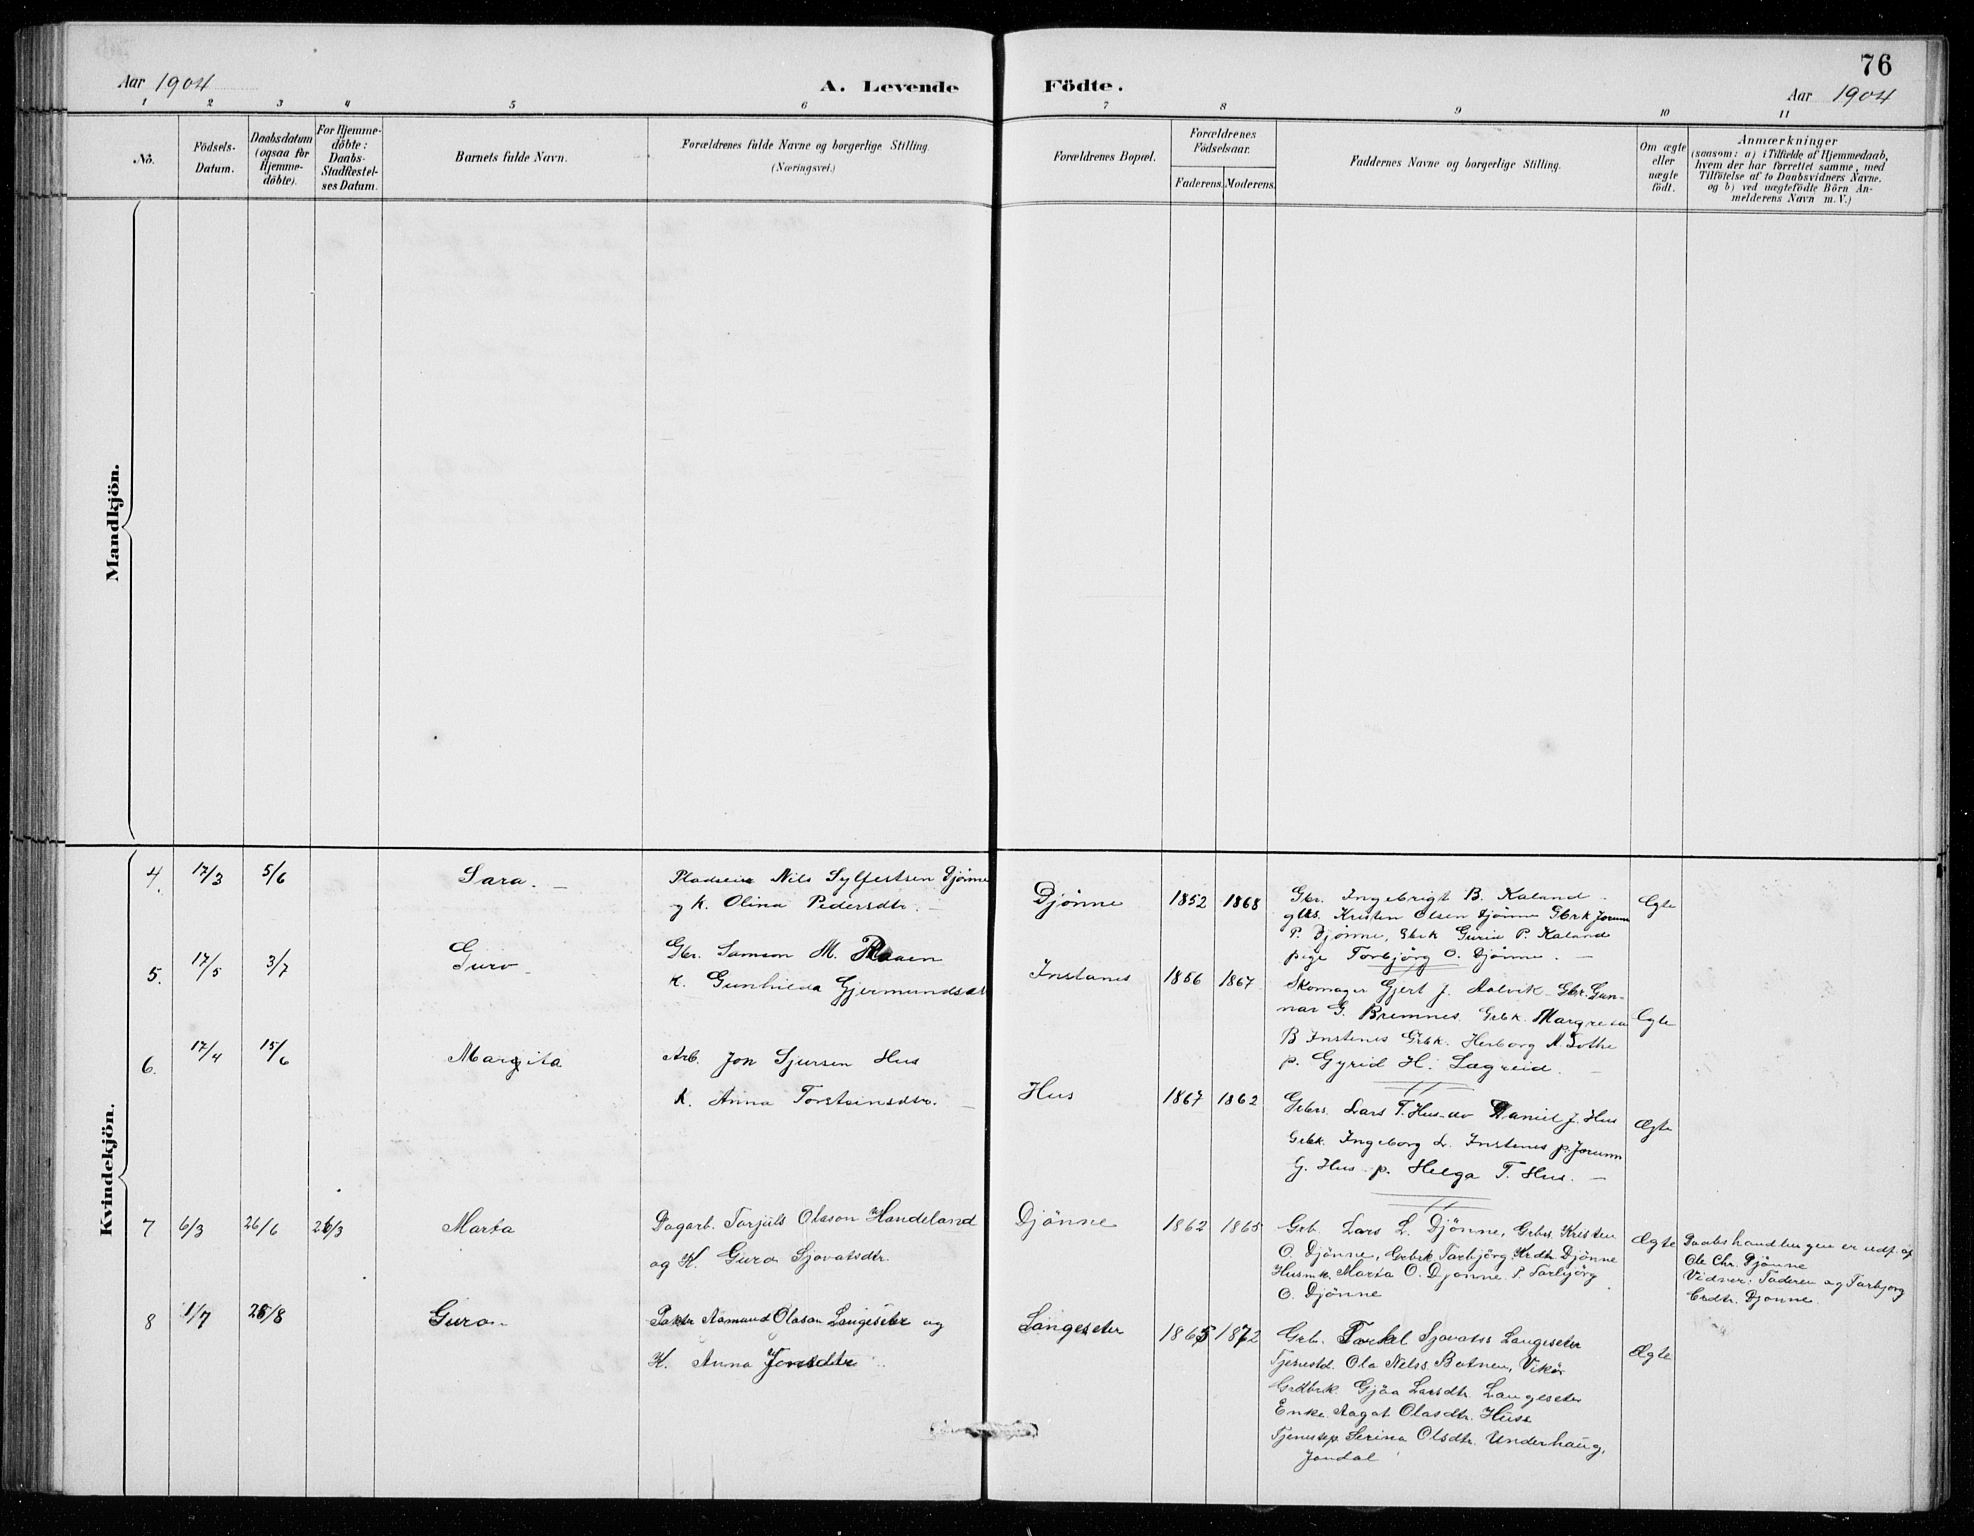 76
Aar 1904
A. Levende Födte.
Aar 1904
1 2 3 4 5 6 7 8 9 10 11
No.
Födsels-Datum.
Daabsdatum (ogsaa for Hjemme-döbte).
For Hjemme-döbte: Daabs-Stadfæstel-ses Datum.
Barnets fulde Navn.
Forældrenes fulde Navne og borgerlige Stilling.
(Næringsvei.)
Forældrenes Bopæl.
Forældrenes Födselsaar.
Faderens.
Moderens.
Faddernes Navne og borgerlige Stilling.
Om ægte eller uægte födt.
Anmærkninger
(saasom: a) i Tilfælde af Hjemmedaab,
hvem der har forrettet samme, med
Tilföielse af to Daabsvidners Navne.
og b) ved uægtefödte Börn An-
melderens Navn m. V.)
Mandkjön.
Kvindekjön.
4. 17/3 5/6 Sara.
Nils Sylfestsen Djönne
og k. Olina Pedersdtr.
Djønne 1852 1868
Gbr. Ingebrigt B. Kaland
Kristen Olsen Djönne Gbrk Jorunn
P. Djönne, Gbrk Gurid P. Kaland
pige Torbjörg O. Djönne.
Ægte
5. 17/5 3/7 Guro
Gbr. Samson M.
K. Gunhilda Gjermundsdt
Instanes 1856 1867
Skomager Gjert J. Aalvik Gbr. Gun-
nar G. Bremnes. Grbk. Margreta
B Instenes Grbk. Herborg A. Lothe
p. Gyrid H. Lægreid.
Ægte
6. 17/4 15/6 Margita
Arb. Jon Sjursen Hus
K. Anna Torsteinsdtr.
Hus 1867 1862
Grbrs. Lars T. Hus do Daniel J. Hus
Grbk. Ingeborg L. Instenes p. Jorunn
G. Hus p. Helga T. Hus.
Ægte
7 6/3 26/6 26/3 Marta
Dagarb. Torjuls Olason Handeland
og K. Guro Sjovatsdtr.
Djönne 1862 1865
Grb. Lars L. Djönne, Grbr. Kristen
O. Djönne, Grbrk Torbjörg Krdtr. Djönne
Husmk. Marta O. Djonne. P. Torbjörg
O. Djönne
Ægte
Daabshandlingen er udf. af
Ole Chr. Djönne
Vidner: Faderen og Torbjorg
Crdtr. Djonne.
8 1/7 28/8 Guro
Aamund Olason Langeseter og
K. Anna Jonsdtr
Langeseter 1865 1872
Grb. Torkel Sjovatss Langeseter
Tjenestd. Ola Nelss. Botnen, Vikör
Grdbrk. Gjöa Larsdtr. Langeseter
Enke. Aagot Olasdtr. Huse
Tjenestep. Serina Olsdtr. Underhaug,
Jondal
Ægte